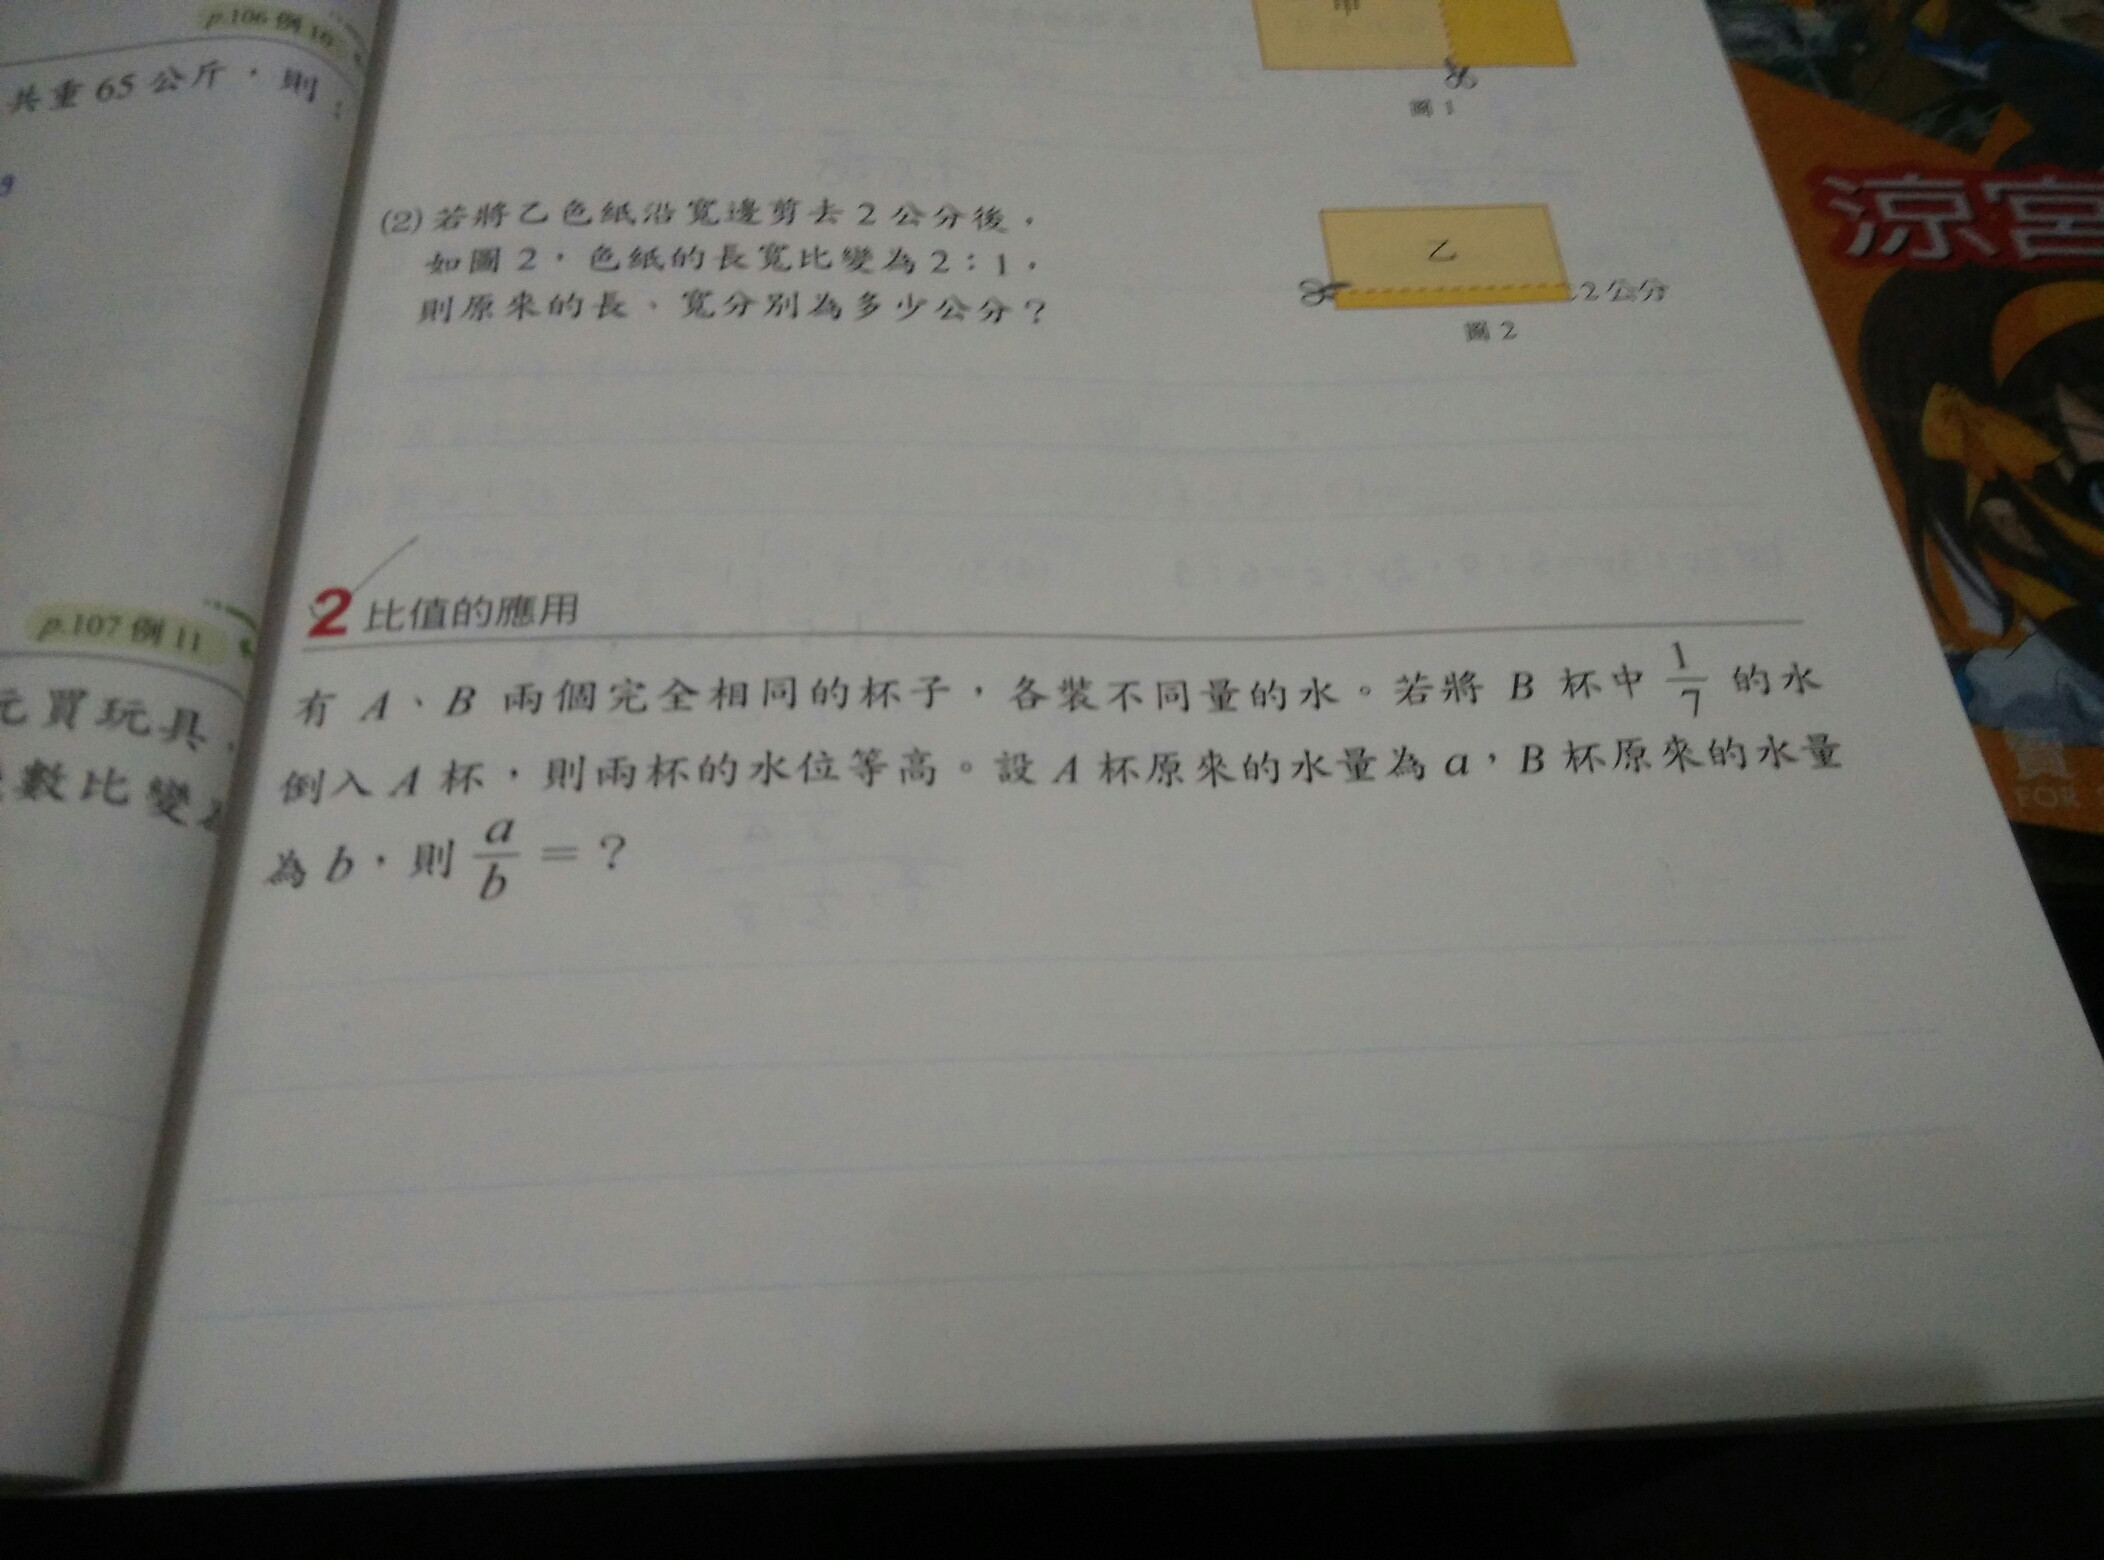 p.106 例 10
共重 65 公斤，則
p.107 例 11
元買玩具，
數比變
甲
圖 1
(2) 若將乙色紙沿寬邊剪去 2 公分後，
如圖 2，色紙的長寬比變為 2：1，
則原來的長、寬分別為多少公分？
乙
2 公分
圖 2
2 比值的應用
有 A、B 兩個完全相同的杯子，各裝不同量的水。若將 B 杯中 1/7 的水
倒入 A 杯，則兩杯的水位等高。設 A 杯原來的水量為 a，B 杯原來的水量
為 b，則 a/b ＝？
涼宮
FOR